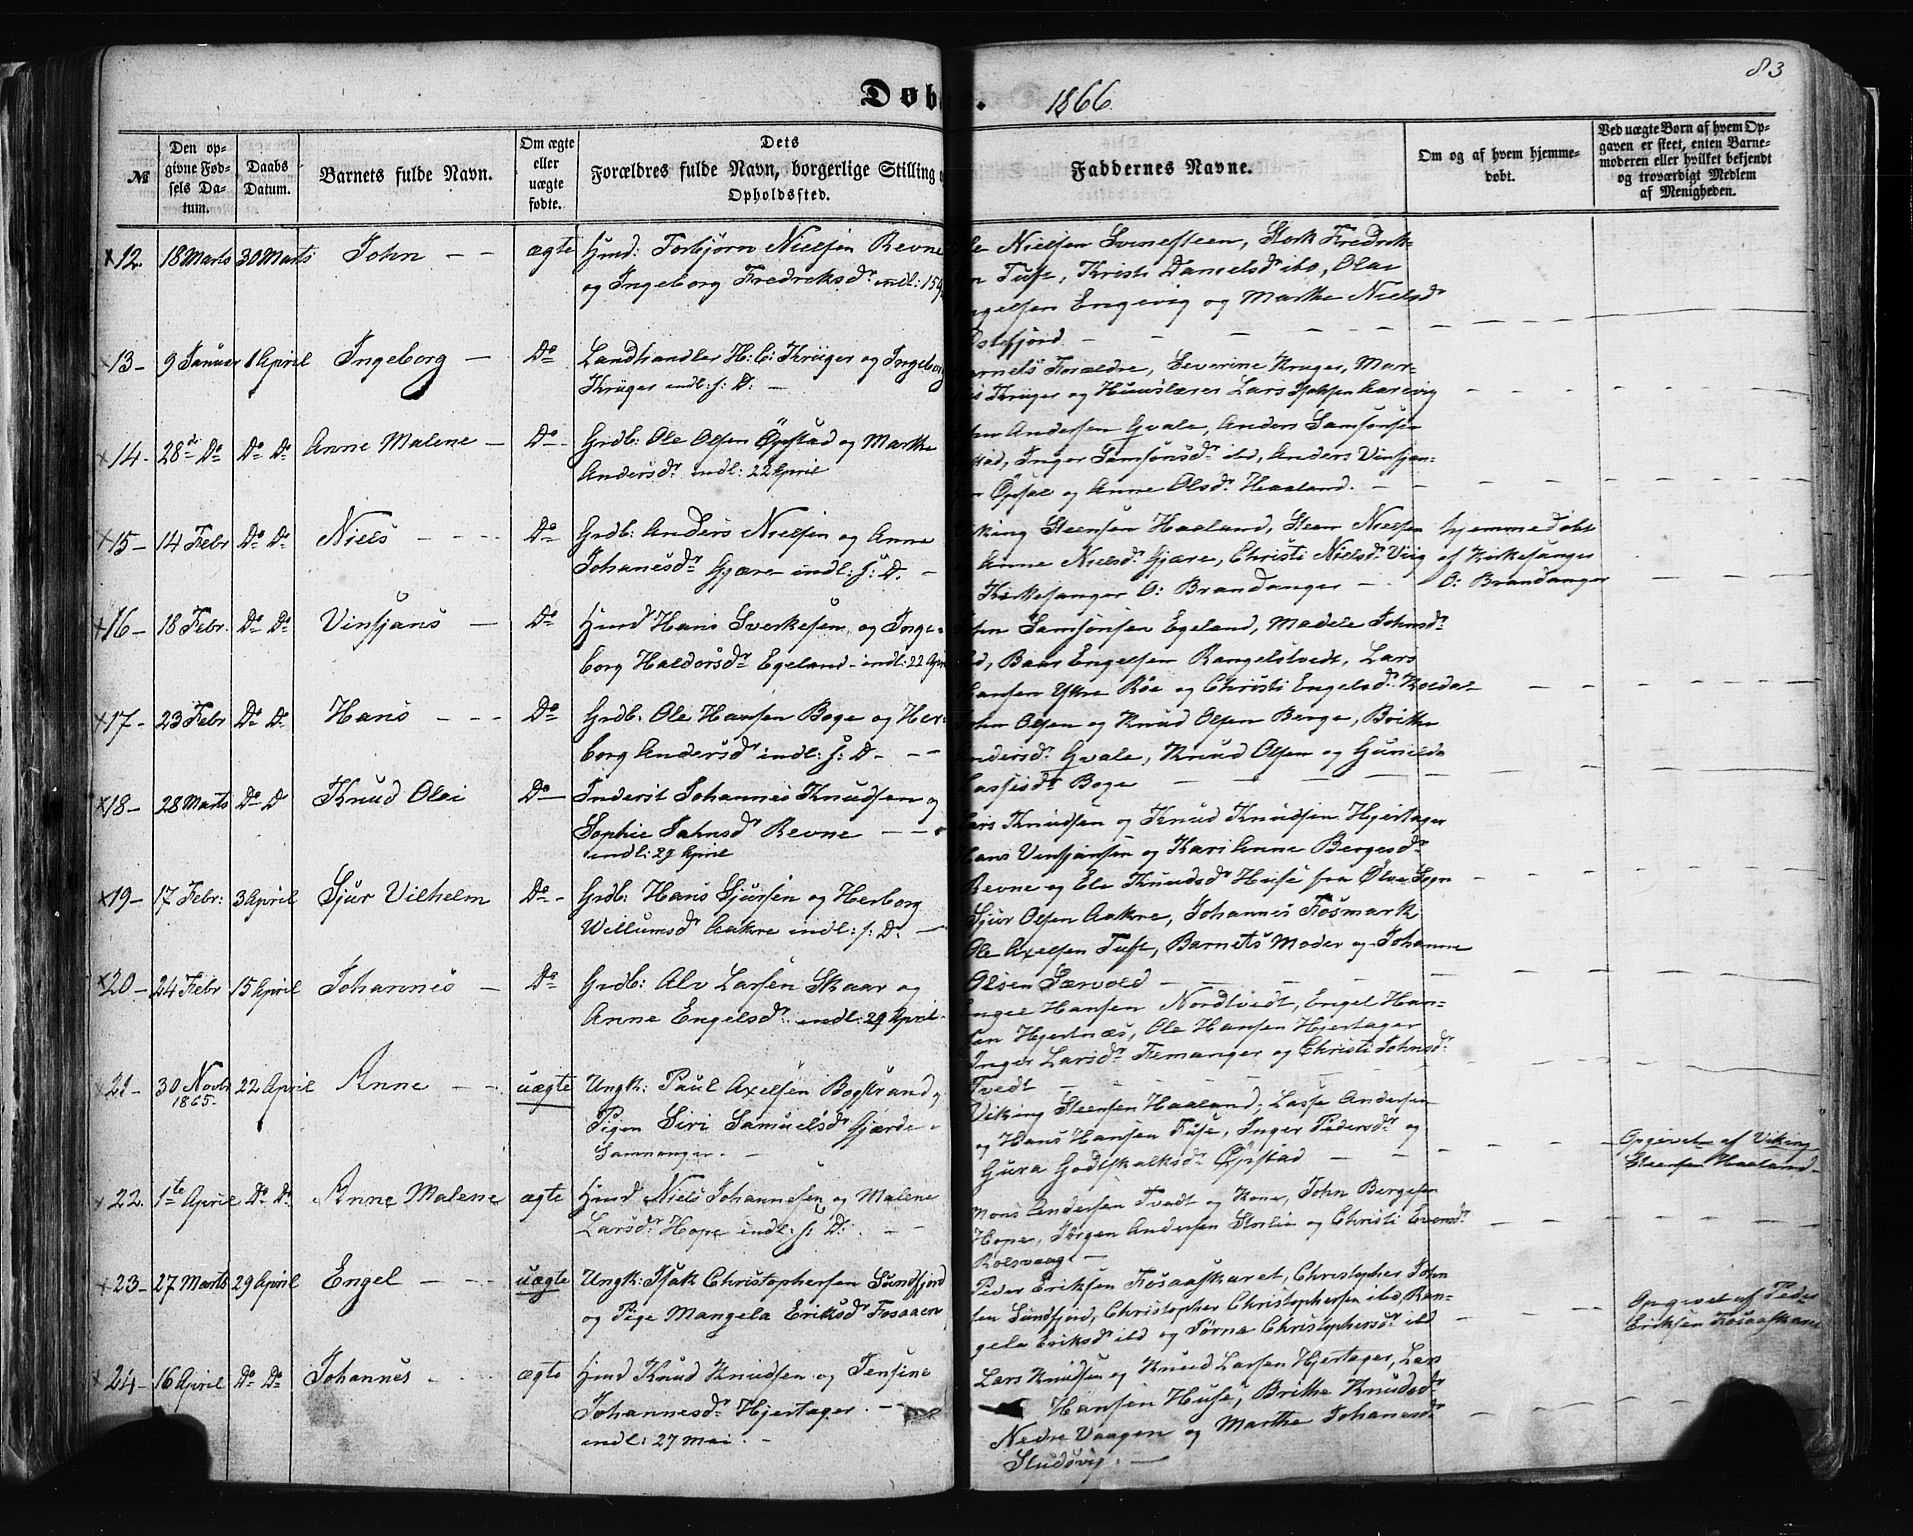 Døb
1866.
83
№
Den opgivne Fødsels Datum.
Daabs Datum.
Barnets fulde Navn.
Om ægte eller uægte fødte.
Dets Forældres fulde Navn, borgerlige Stilling o Opholdssted.
Faddernes Navne.
Om og af hvem hjemmedøbt.
Ved uægte Børn af hvem Opgaven er skeet, enten Barnemoderen eller hvilket bekjendt og troværdigt Medlem af Menigheden.
12. 18 Marts 30 Marts John – – ægte Hmd: Torbjørn Nielsen Revne
og Ingeborg Fredriksdr indl: 15
Nielsen Svinesteen, Stork Fredrik-
Tufte, Kristi Danielsdr ibd, Olai
Engevig og Marthe Nielsdr
13 – 9 Januar 1 April Ingeborg – Do Landhandler H: C: Krüger og Ingeborg
Krüger indl: s: D: –
Forældre, Severine Kruger, Mar-
Krüger og Huuslærer Lars Isaksen Aarevig
14 – 28de Do Do Do Anne Malene – Do – Grdb: Ole Olsen Øpstad og Marthe
Andersdr indl: 22 April
Andersen Gvale, Anders Samsonsen
Inger Samsonsdr ibd, Anders Vinsjan-
Øpsal og Anne Olsdr Haaland. –
15 – 14 Febr Do Do Niels – – – Do Grdb: Anders Nielsen og Anne
Johanesdr Gjære indl: s: D. –
Steensen Haaland, Steen Nielsen hjemmedøbt
Anne Nielsdr Gjære, Christi Nielsdr Viig af Kirkesanger
Kirkesanger O: Brandanger – O: Brandanger
16 – 18 Febr. Do Do Vinsjans – Do Hmd Hans Sverkesen og Inge-
borg Haldorsdr Egeland – indl: 22 April
Samsonsen Egeland, Madele Johnsdr
Baar Engelsen Rangelstvedt, Lars
Hansen Ytre Røe og Christi Engelsdr Koldal
17 – 23 Febr Do Do Hans – – – Do Grdb: Ole Hansen Boge og Her-
borg Andersdr indl: s: D –
Olsen og Knud Olsen Berge, Brithe
Andersdr Gvale, Knud Olsen og Gunilda
Lassesdr Boge –
18 – 28 Marts Do D Knud Olai Do – Inderst Johannes Knudsen og
Sophie Johnsdr Revne – –
indl: 29 April
Lars Knudsen og Knud Knudsen Hjertager
Hans Vinsjansen og Kari Anne Bergesdr
Revne og Ele Knudsdr Huse fra Ølve Sogn
19 – 17 Febr: 3 April Sjur Vilhelm Do – Grdb: Hans Sjursen og Herborg
Willumsdr Aakre indl: s: D. –
Sjur Olsen Aakre, Johannes Fosmark
Ole Axelsen Tufte, Barnets Moder og Johanne
Olsen Sævold –
20 – 24 Febr 15 April Johannes – Do Grdb: Alv Larsen Skaar og
Anne Engelsdr indl: 29 April
Engel Hansen Nordtvedt, Engel Han-
sen Hjertnæs, Ole Hansen Hjertager
Inger Larsdr Femanger og Christi Johnsdr
Tvedt –
21 – 30 Novbr 1865. 22 April Anne – – uægte Ungk: Paul Axelsen Bogstrand og
Pigen Siri Samuelsdr Gjerde
Samnanger. –
Viking Steensen Haaland, Lasse Andersen
og Hans Hansen Tufte, Inger Pedersdr og
Gura Godtskalksdr Øpstad –
Opgivet af Viking
Steensen Haaland
22. 1ste April Do Do Anne Malene ægte Hmd Niels Johannesen og Malene
Larsdr Hope indl: s: D: –
Mons Andersen Tvedt og Kone, John Bergesen
Hope, Jørgen Andersen Storlie og Christi Evensdr
Rolsvaag –
23 – 27 Marts 29 April Engel – – – uægte Ungk: Isak Christophersen Sundfjord
og Pige Mangela Eriksdr Fosaaen
Peder Eriksen Fosaaskaret, Christopher John
sen Sundfjord, Christopher Christophersen ibd Ran-
gela Eriksdr ibd og Jørna Christophersdr ibd
Opgivet af Peder
Eriksen Fosaaskaret
24 – 16 April Do Do Johannes – ægte Hmd Knud Knudsen og Jensine
Johannesdr Hjertager. –
indl: 27 Mai. –
Lars Knudsen og Knud Larsen Hjertager, Lars
Hansen Huse, Brithe Knudsdr
Nedre Vaagen og Marthe Johanesdr
Studsvig. –